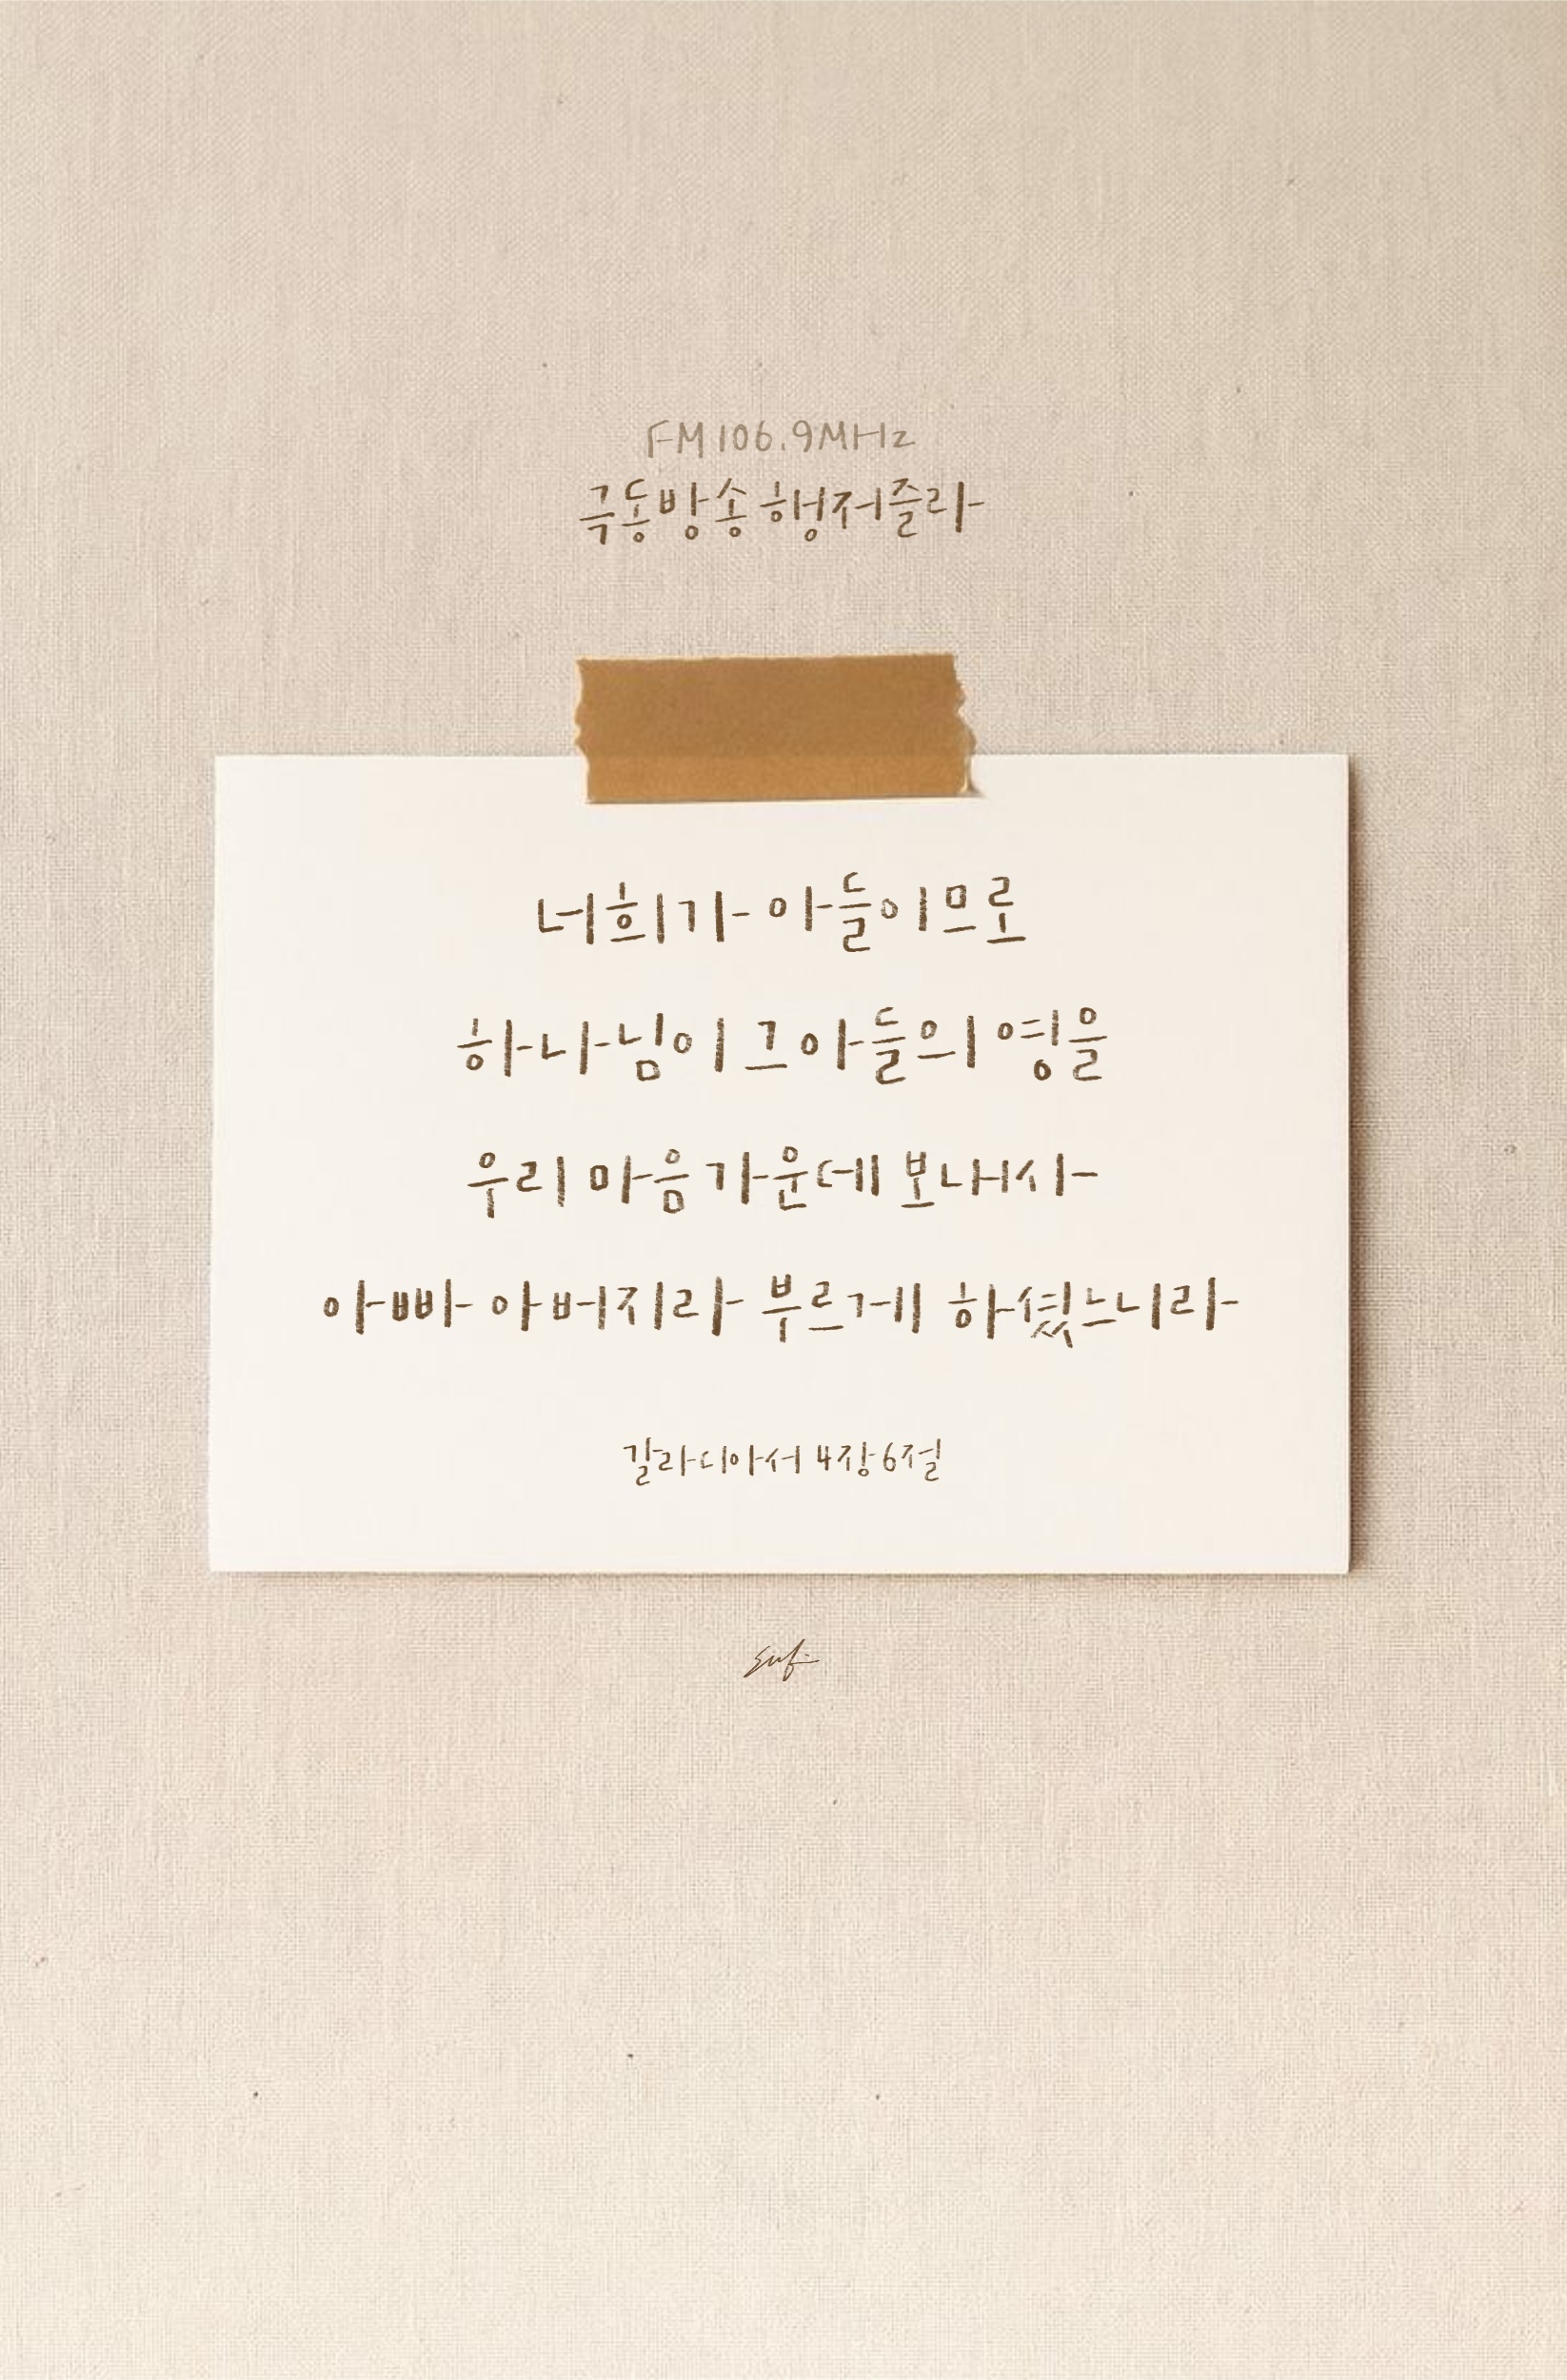 FM 106.9MHz
극동방송 행저즐라
너희가 아들이므로
하나님이 그 아들의 영을
우리 마음 가운데 보내사
아빠 아버지라 부르게 하셨느니라
갈라디아서 4장 6절